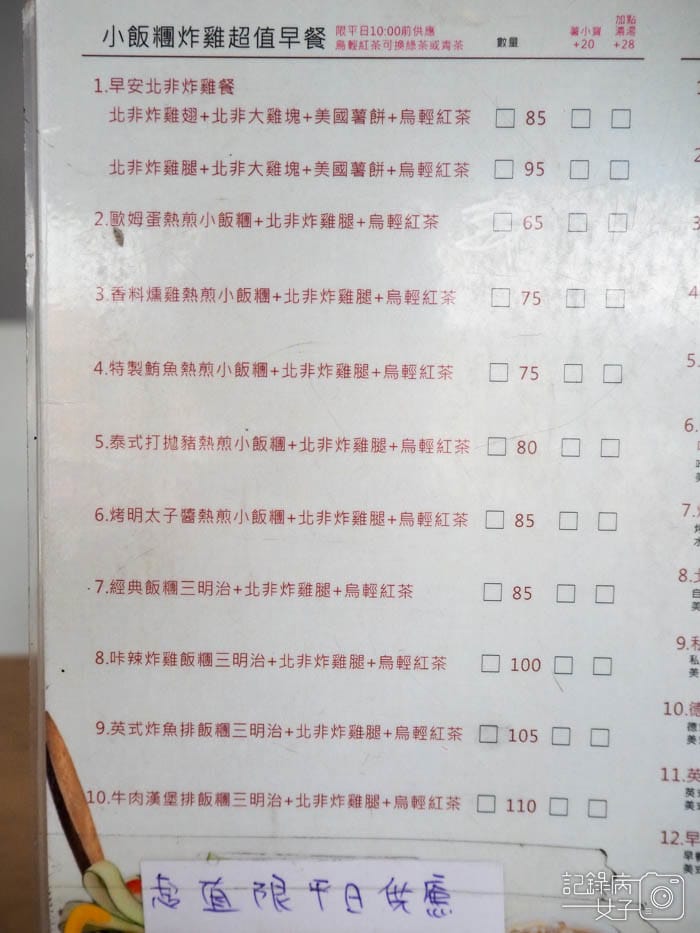 小飯糰炸雞超值早餐
限平日10:00前供應
烏輕紅茶可換綠茶或青茶
數量
薯小寶
+20
加點
濃湯
+28
1.早安北非炸雞餐
北非炸雞翅+北非大雞塊+美國薯餅+烏輕紅茶 □ 85 □ □
北非炸雞腿+北非大雞塊+美國薯餅+烏輕紅茶 □ 95 □ □
2.歐姆蛋熱煎小飯糰+北非炸雞腿+烏輕紅茶 □ 65 □ □
3.香料燻雞熱煎小飯糰+北非炸雞腿+烏輕紅茶 □ 75 □ □
4.特製鮪魚熱煎小飯糰+北非炸雞腿+烏輕紅茶 □ 75 □ □
5.泰式打拋豬熱煎小飯糰+北非炸雞腿+烏輕紅茶 □ 80 □ □
6.烤明太子醬熱煎小飯糰+北非炸雞腿+烏輕紅茶 □ 85 □ □
7.經典飯糰三明治+北非炸雞腿+烏輕紅茶 □ 85 □ □
8.咔辣炸雞飯糰三明治+北非炸雞腿+烏輕紅茶 □ 100 □ □
9.英式炸魚排飯糰三明治+北非炸雞腿+烏輕紅茶 □ 105 □ □
10.牛肉漢堡排飯糰三明治+北非炸雞腿+烏輕紅茶 □ 110 □ □
超值限平日供應
5.
6.
美
7.
水
8.
自
美
9.私
私
美
10.德
德
美
11.英
英式
美
12.早
早餐
美式
記錄病
女子